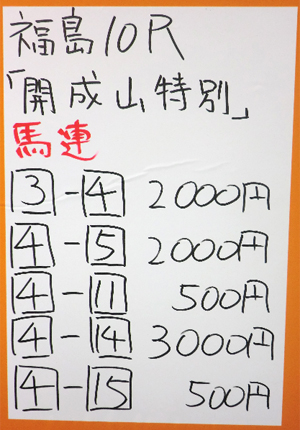 福島10R
「開成山特別」
馬連
3-4 2000円
4-5 2000円
4-11 500円
4-14 3000円
4-15 500円